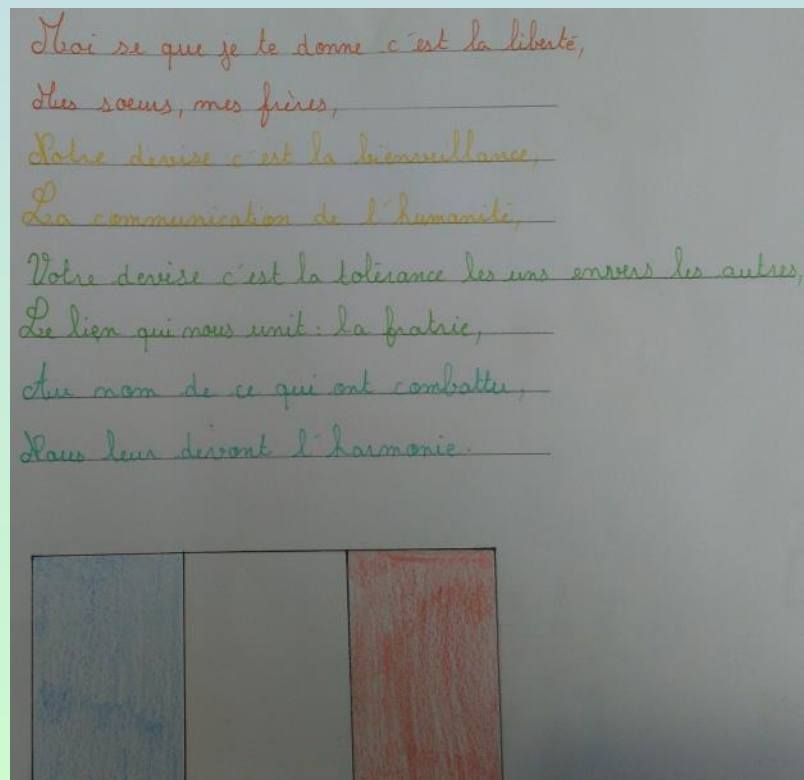 Moi se que je te donne c'est la liberté,
Mes soeurs, mes frères,
Notre devise c'est la bienveillance,
La communication de l'humanité,
Votre devise c'est la tolérance les uns envers les autres,
Le lien qui nous unit : la fratrie,
Au nom de ce qui ont combattu,
Nous leur devont l'harmonie.